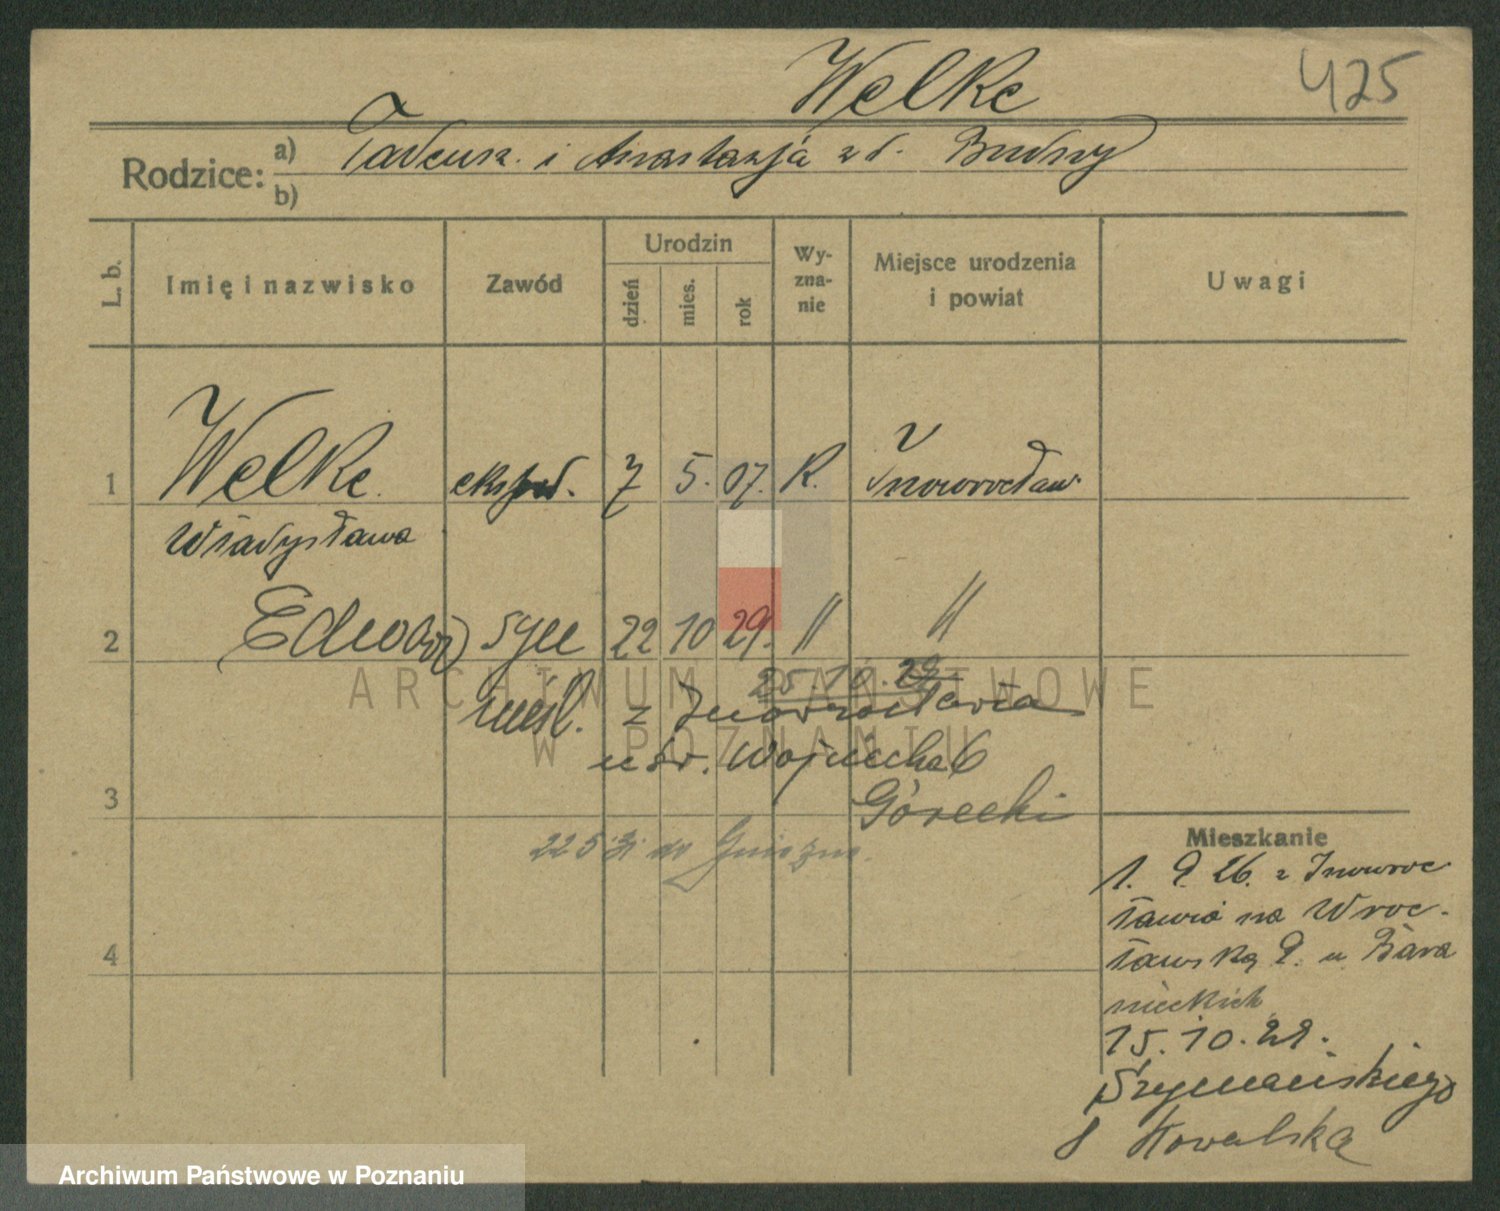 Welke 425
Rodzice: a) Tadeusz i Anastazja z d. Budny
b)
L. b. Imię i nazwisko Zawód Urodzin dzień mies. rok Wy-zna-nie Miejsce urodzenia i powiat Uwagi
1 Welke eksped. 7 5. 07. R. Inowrocław
Władysława
2 Edward syn 22 10 29. " "
25.10.29
nieśl. z Inowrocławia
u św. Wojciecha 6
Górecki
3
22 5 31 do Gniezna.
Mieszkanie
1. 9. 26. z Inowroc
ławia na Wroc-
ławską 9. u Bara
nieckich
4
15.10.28.
Szymańskiego
8 Kowalska
ARCHIWUM PAŃSTWOWE
W POZNANIU
Archiwum Państwowe w Poznaniu